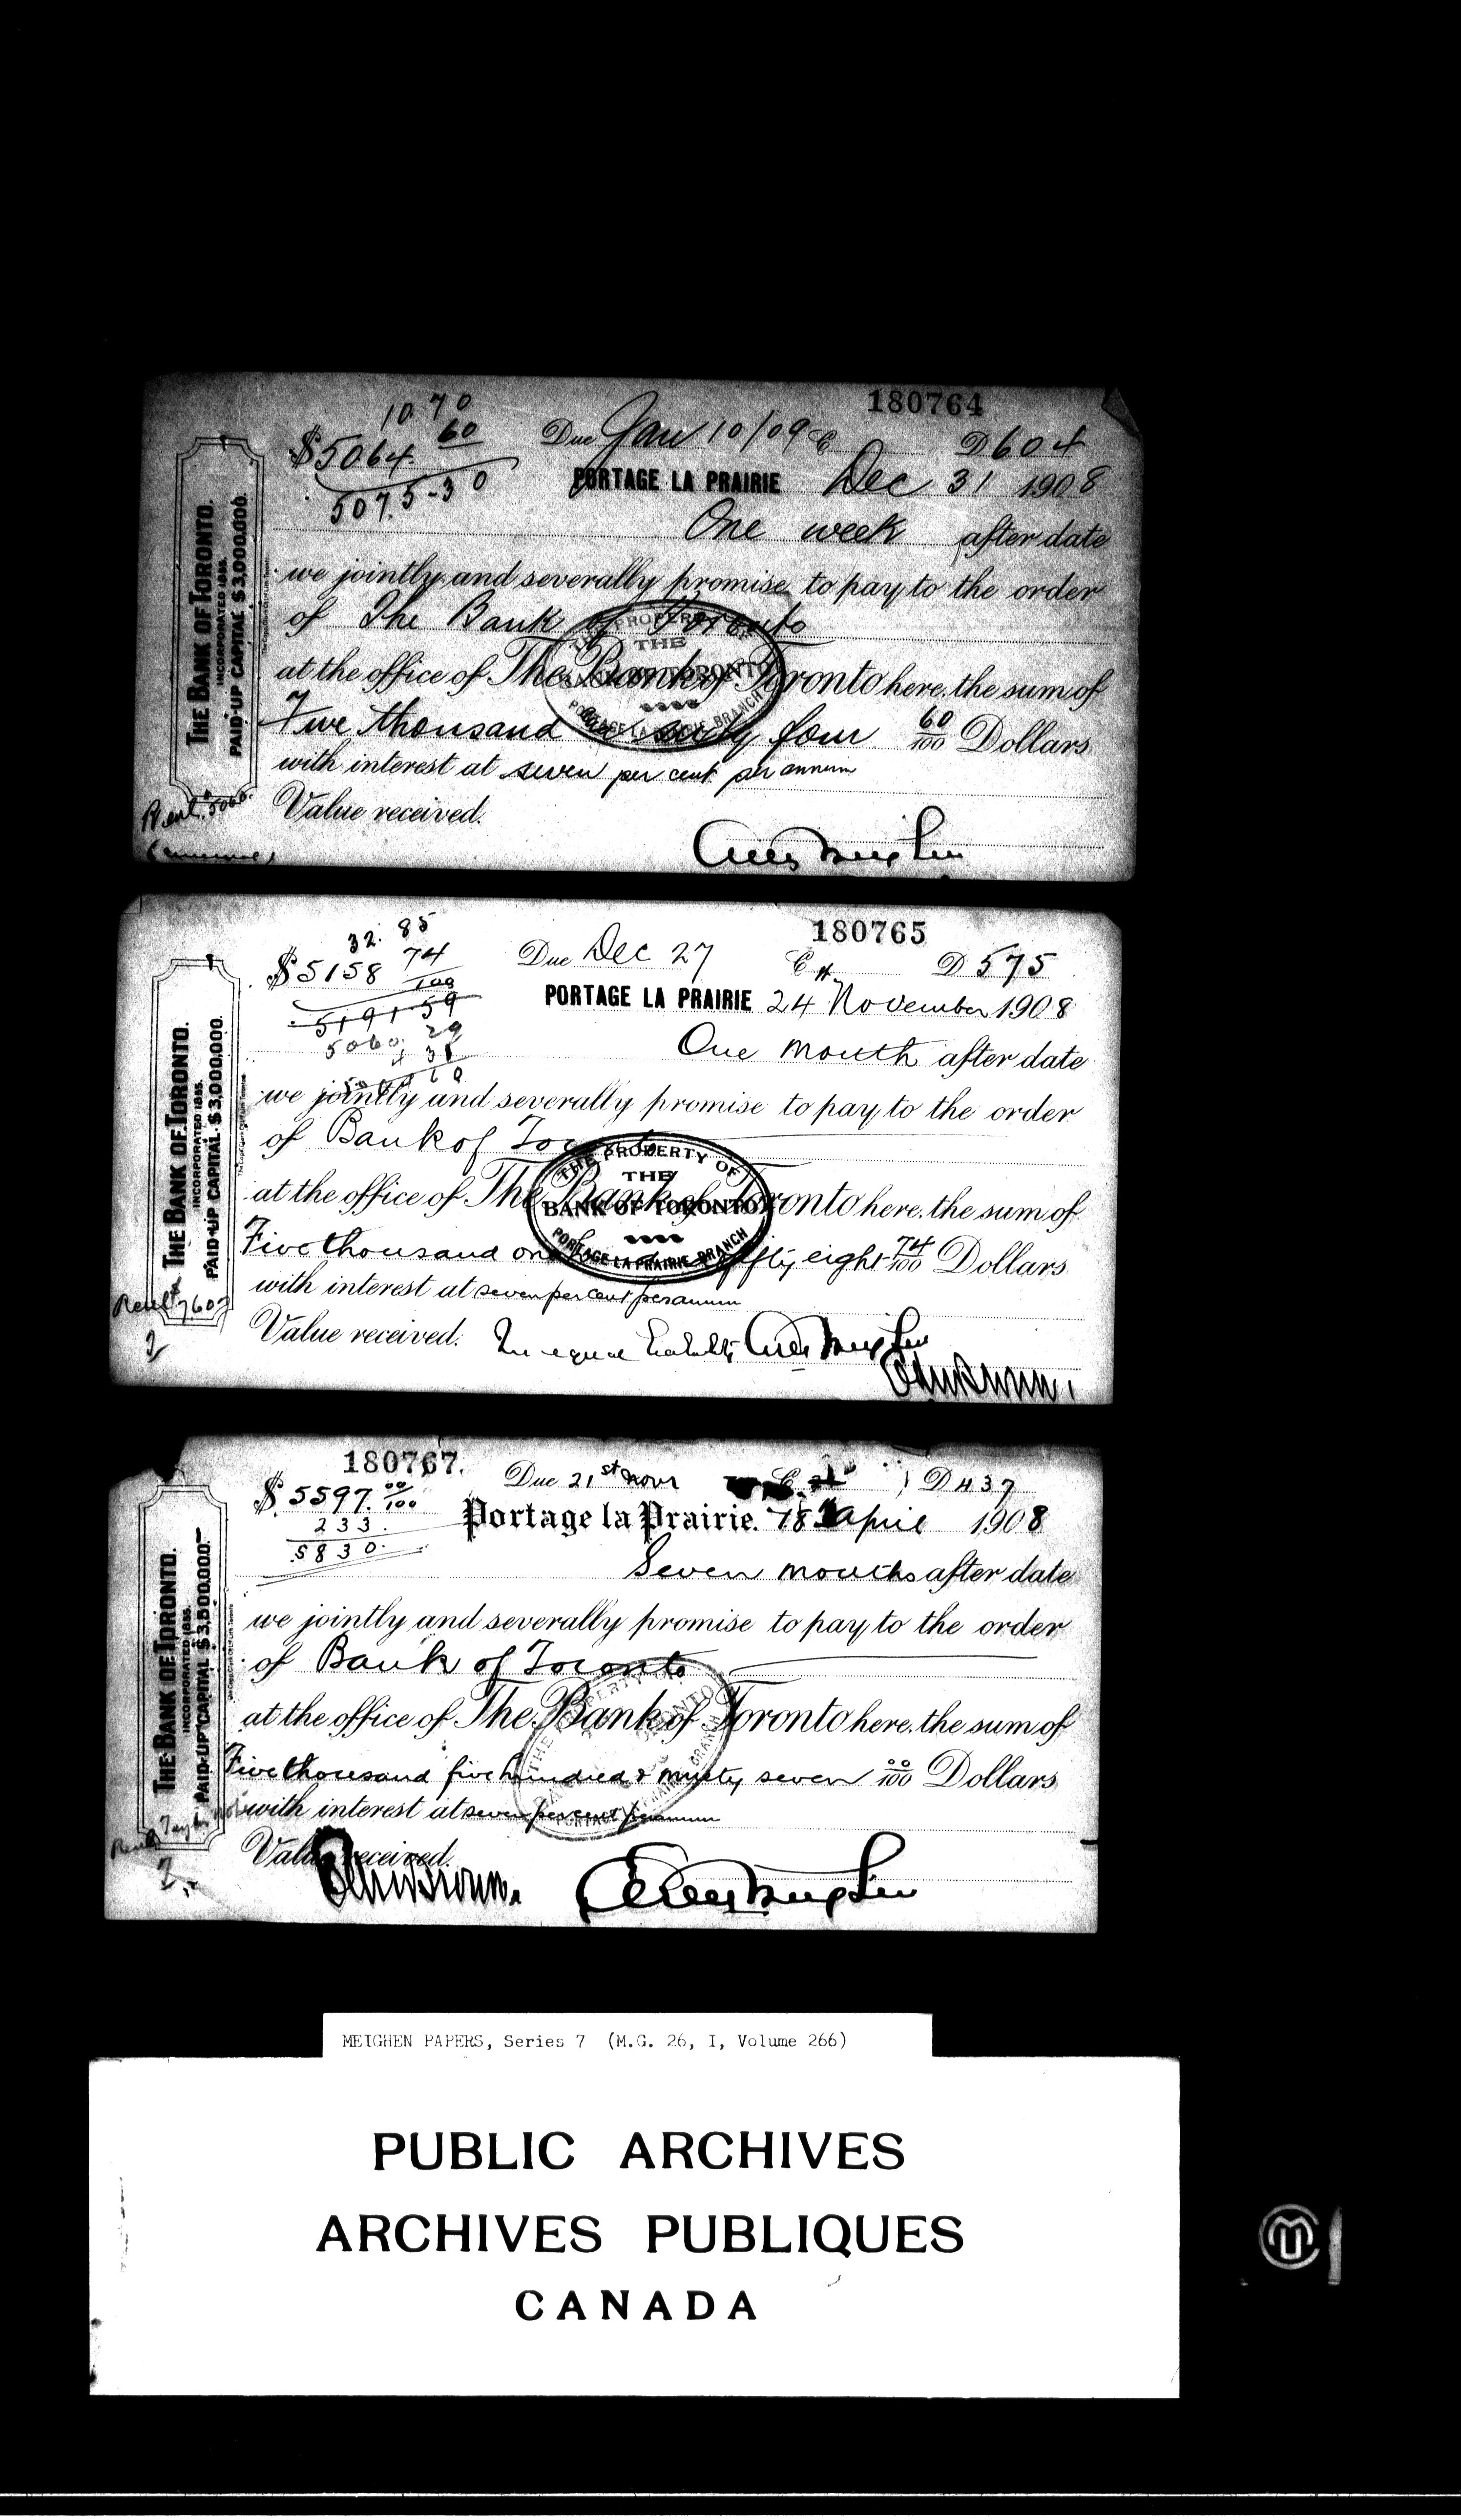 180764
10.70
$5064.60
5075-30
Due Jan 10/09 C D604
PORTAGE LA PRAIRIE Dec 31 1908
One week after date
we jointly and severally promise to pay to the order
of The Bank of Toronto
at the office of The Bank of Toronto here, the sum of
Five thousand sixty four 60/100 Dollars
with interest at seven per cent per annum
Value received.
THE BANK OF TORONTO.
INCORPORATED 1855.
PAID-UP CAPITAL $3,000,000.
THE PROPERTY OF
THE
BANK OF TORONTO
PORTAGE LA PRAIRIE BRANCH
180765
32.85
$5158 74/100
5191 59
Due Dec 27 C D575
PORTAGE LA PRAIRIE 24 November 1908
One month after date
we jointly and severally promise to pay to the order
of Bank of Toronto
at the office of The Bank of Toronto here, the sum of
Five thousand one fifty eight 74/100 Dollars
with interest at seven per cent per annum
Value received.
THE BANK OF TORONTO.
INCORPORATED 1855.
PAID-UP CAPITAL $3,000,000.
THE PROPERTY OF
THE
BANK OF TORONTO
PORTAGE LA PRAIRIE BRANCH
2
180767
$5597.00/100
233.
5830.
Due 21st Novr C D437
Portage la Prairie. 18 April 1908
Seven months after date
we jointly and severally promise to pay to the order
of Bank of Toronto
at the office of The Bank of Toronto here, the sum of
Five thousand five hundred & ninety seven 00/100 Dollars
with interest at seven per cent per annum
Value received.
THE BANK OF TORONTO.
INCORPORATED 1855.
PAID-UP CAPITAL $3,500,000.
2
MEIGHEN PAPERS, Series 7 (M.G. 26, I, Volume 266)
PUBLIC ARCHIVES
ARCHIVES PUBLIQUES
CANADA